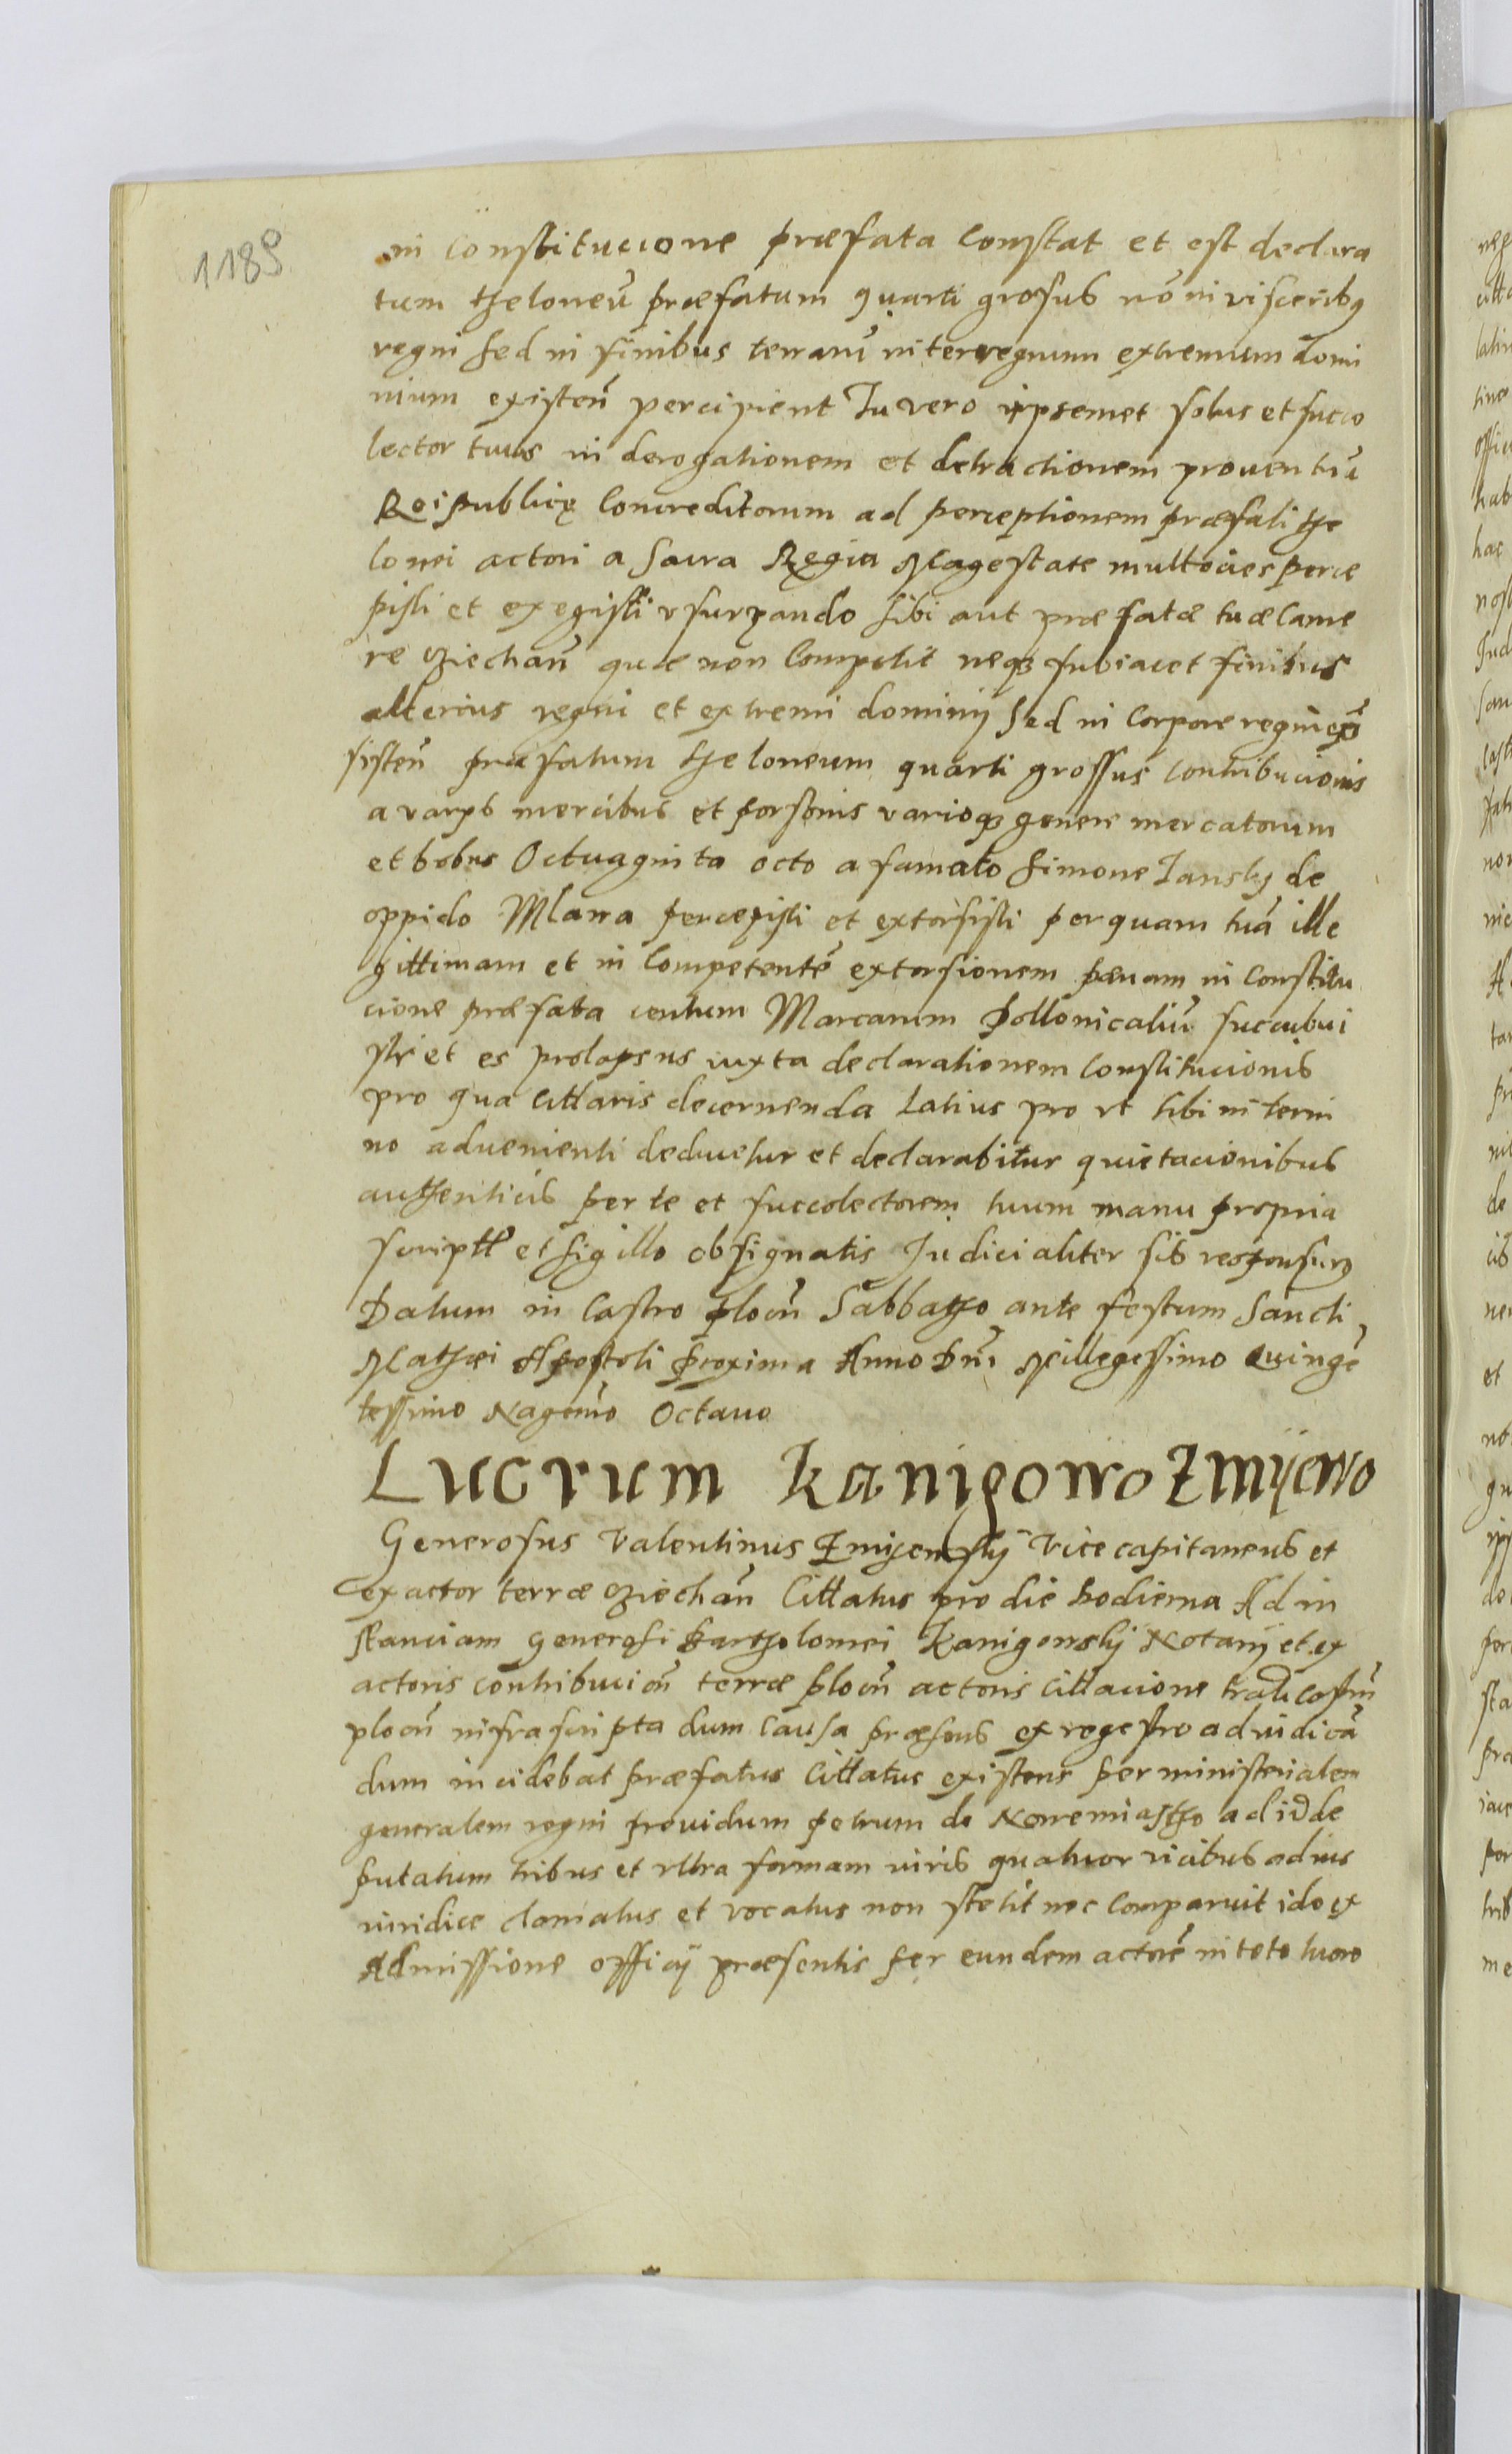 1189
in Constitucione præfata Constat et est declara
tum theloneū præfatum quarti grosus nō in visceribꝰ
regni sed in finibus terrarū interregnum extremum domi
nium existeñ percipient Tu vero ipsemet solus et succo
lector tuus in derogationem et detractionem prouentuū
Reipublicę Concreditorum ad perceptionem præfati the
lonei actori a Sacra Regia Magestate multocies perce
pisti et exegisti vsurpando sibi aut præfatæ tuæ Came
re Cziechan̄ quæ non Competit neqꝫ subiacet finibus
alterius regni et extremi dominij Sed in Corpore regni exi
sisten̄ præfatum theloneum quarti grossus contribucionis
a varys mercibus et personis varioqꝫ genere mercatorum
et bobus Octuaginta octo a famato Simone Jansky de
oppido Mlawa percepisti et extorsisti per quam tuā ille
gittimam et in Competentē extorsionem pænam in Constitu
cione præfata centum Marcarum Pollonicaliū succubui
sti et es prolapsus iuxta declarationem Constitucionis
pro qua Cittaris decernenda Latius pro vt tibi in termi
no aduenienti deducetur et declarabitur quietacionibus
authenticis per te et succolectorem tuum manu propria
scriptis et sigillo obsignatis Judicialiter sis responsurꝰ
Datum in Castro plocn̄ Sabbatho ante festum Sancti
Mathæi Apostoli proxima Anno Dn̄i Millegessimo Quingē
tessimo Nagemō Octauo
Lucrum Kanigowo Zmijewo
Generosus Valentinus Zmijewskij Vice capitaneus et
exactor terræ Cziechan̄ Cittatus pro die hodierna Ad in
stanciam Generosi Bartholomei Kanigowskj Notarij et ex
actoris contribucion̄ terræ plocn̄ actoris Cittacione trali Castrn̄
plocn̄ infrascripta dum Causa præsens ex regestro adiudicā
dum incidebat præfatus Cittatus existens per ministerialem
generalem regni prouidum petrum de Nowemiastho ad id de
putatum tribus et vltra formam iuris quatuor vicibus ad ius
iuridice clamatus et vocatus non stetit nec Comparuit ido ex
Admissione officij præsentis per eundem actorē in toto lucro